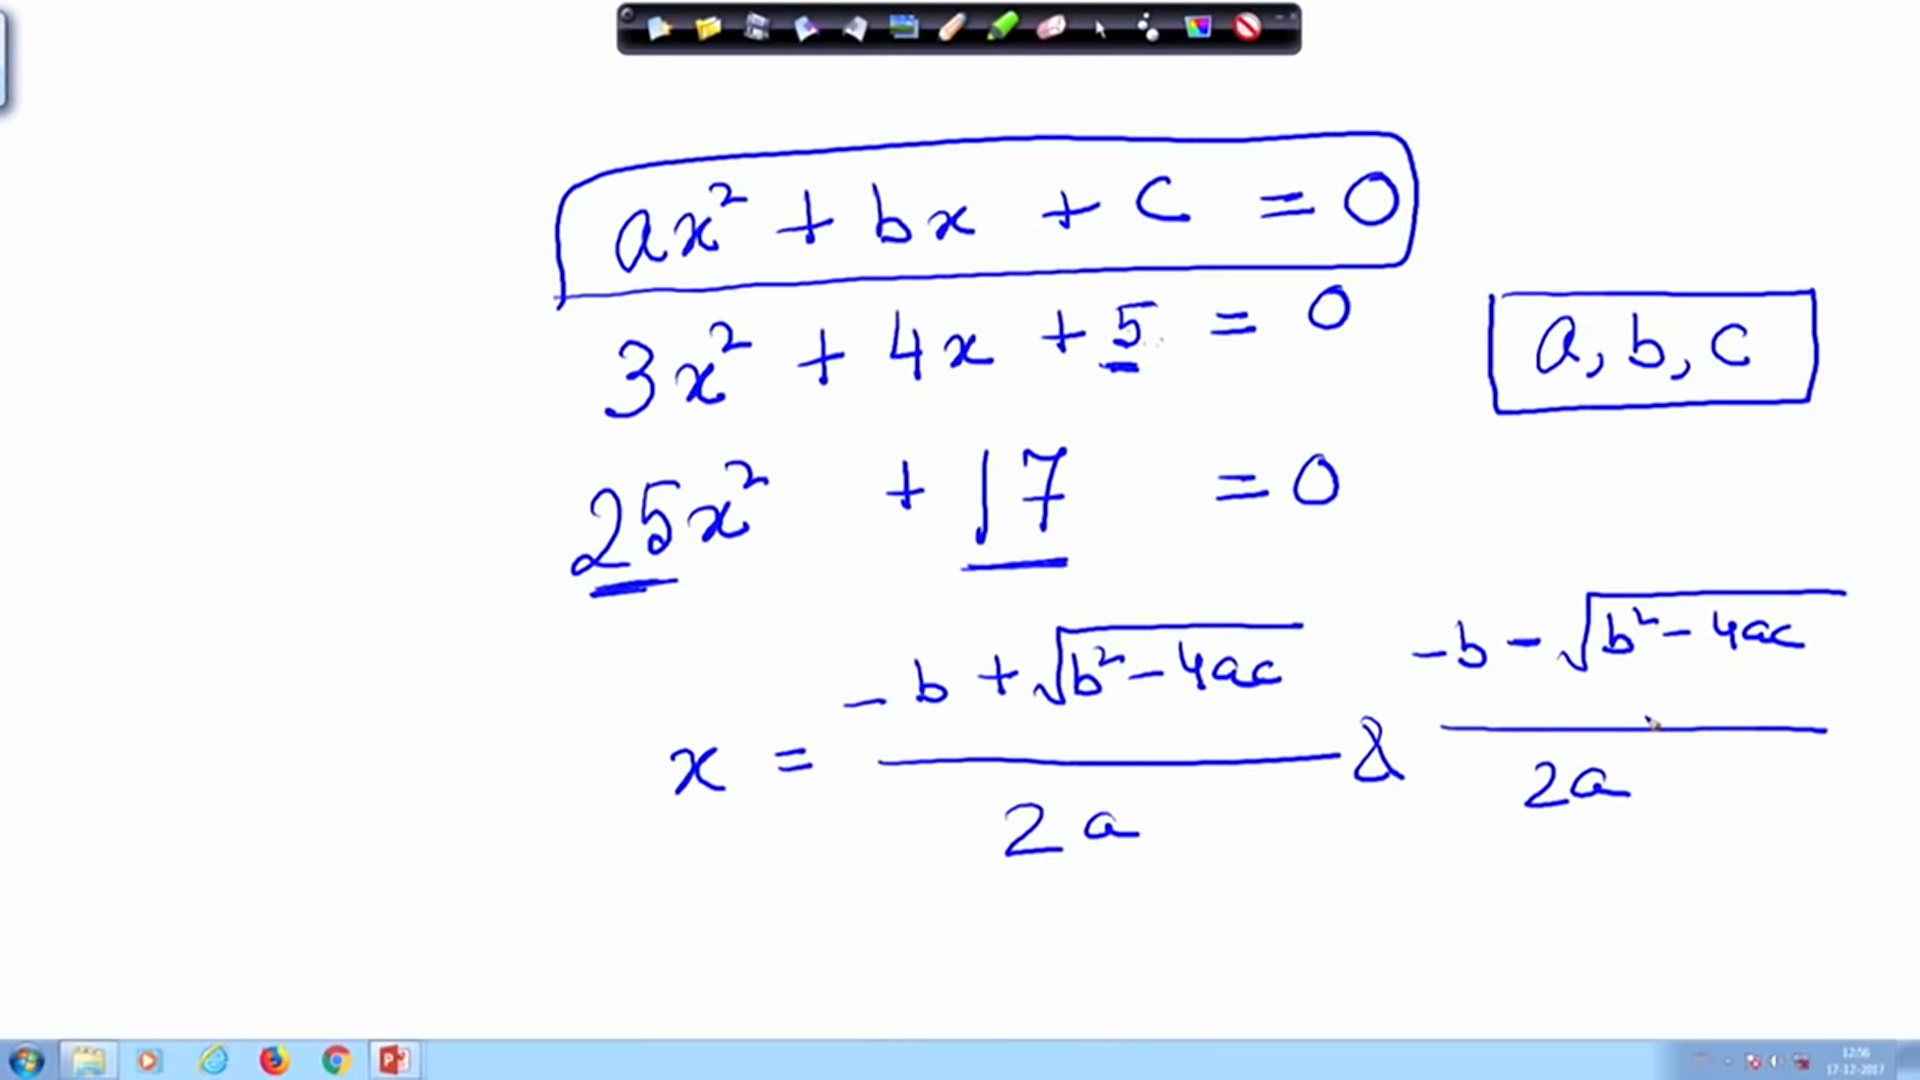 ax² + bx + c = 0
3x² + 4x + 5 = 0
a, b, c
25x² + 17 = 0
x = (-b + √(b² - 4ac)) / 2a & (-b - √(b² - 4ac)) / 2a
12:56
17-12-2017